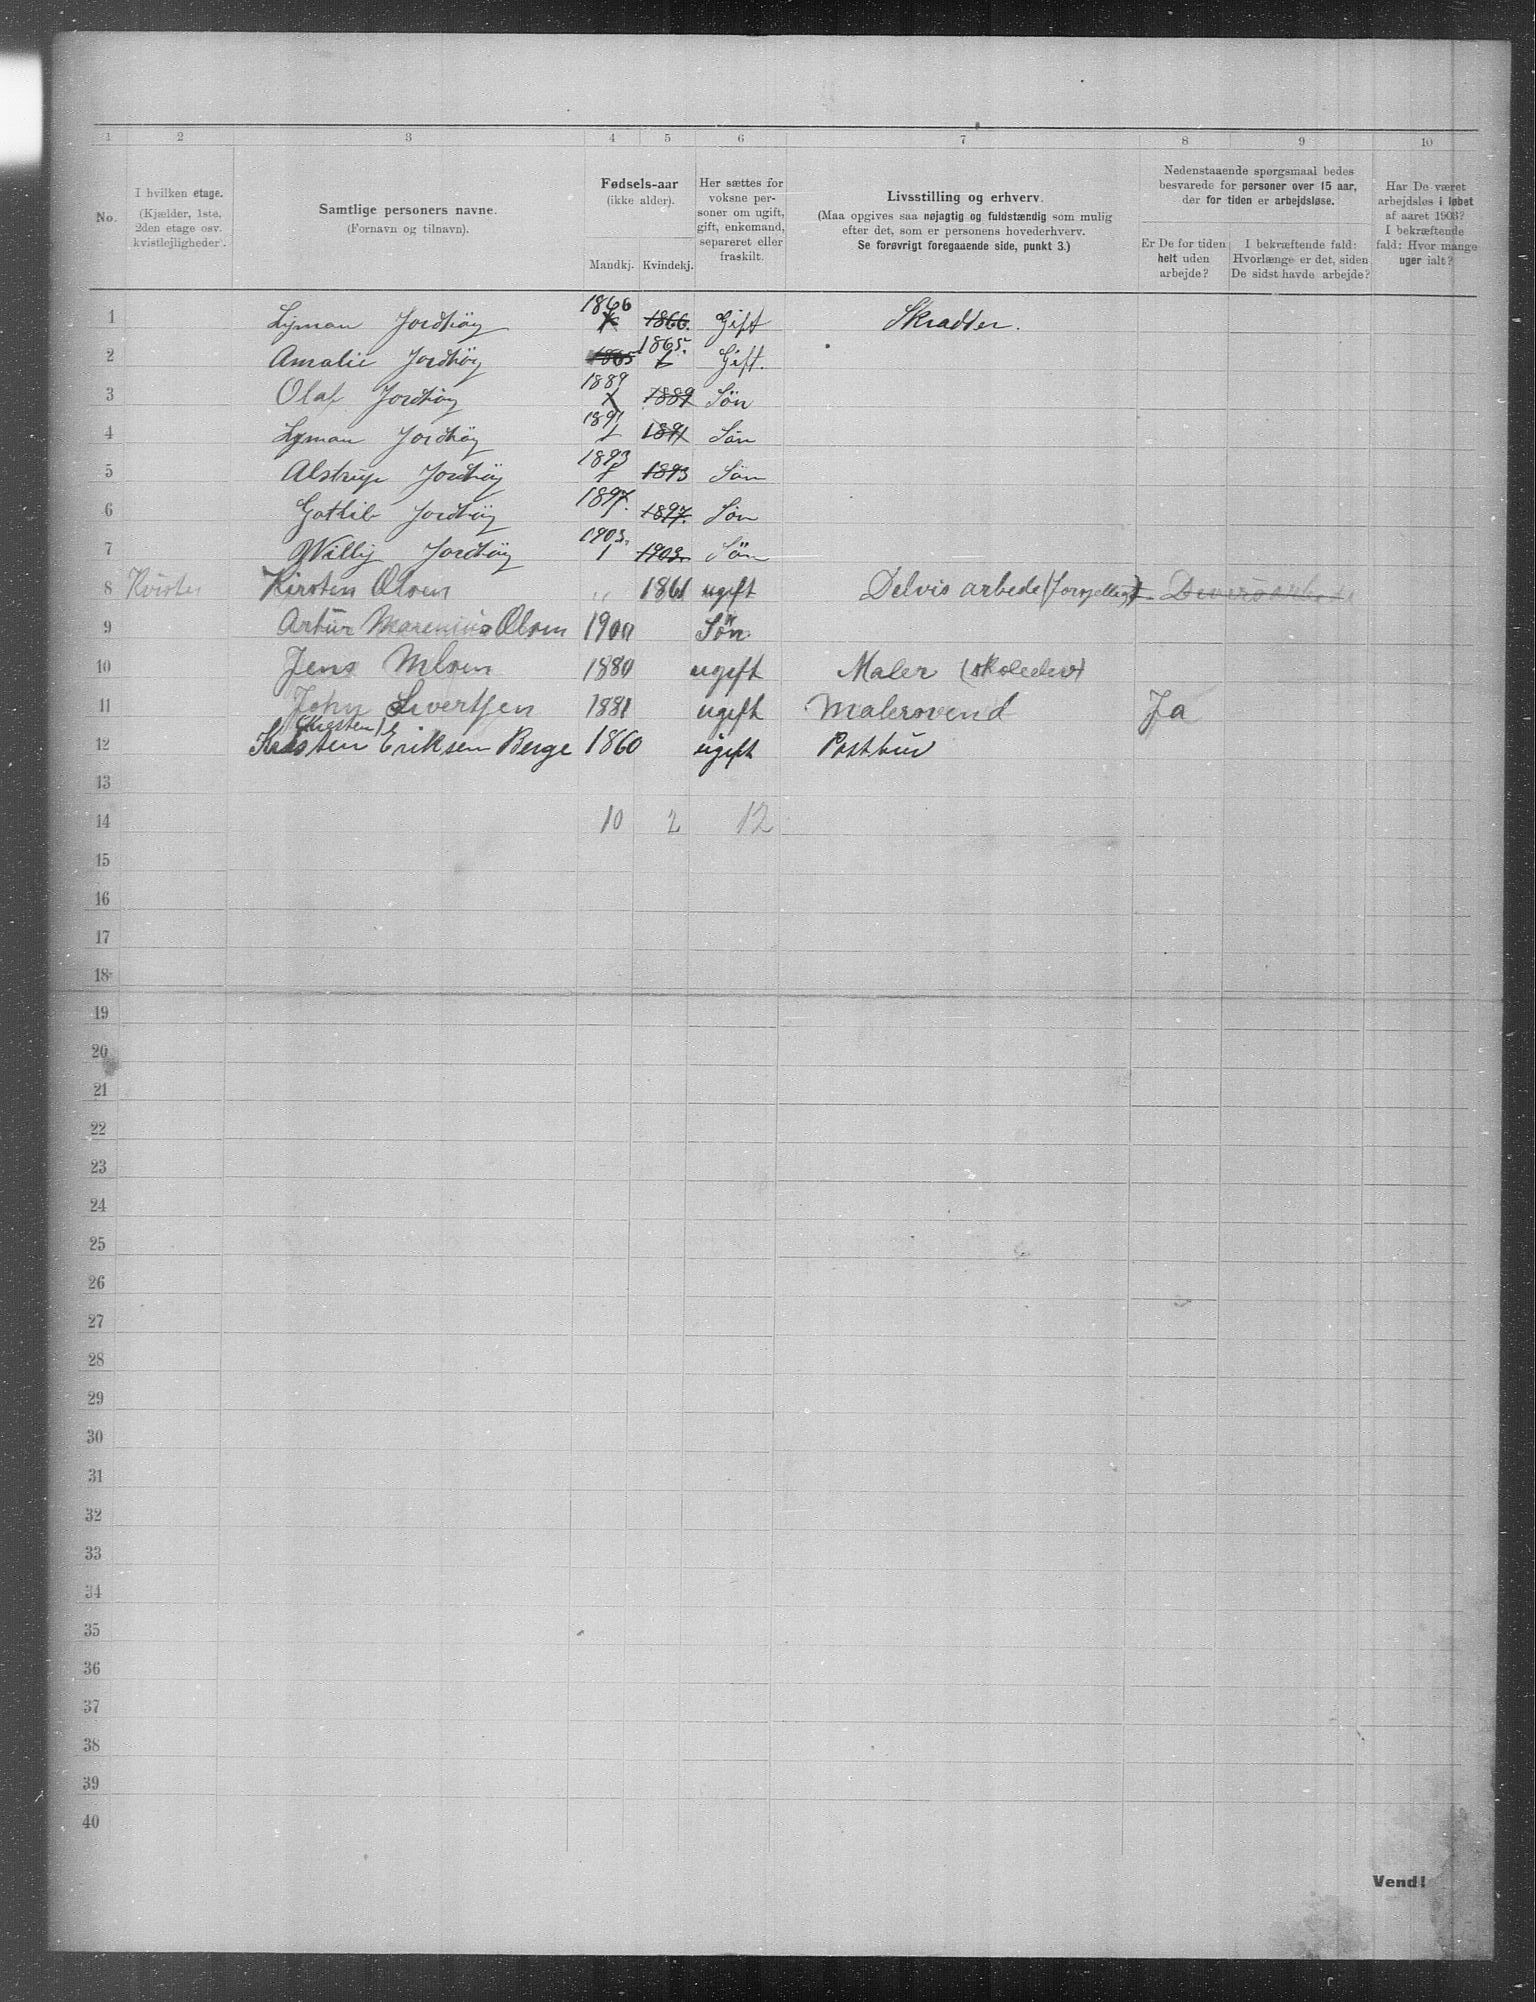 1 2 3 4 5 6 7 8 9 10
No.
I hvilken etage.
(Kjælder, 1ste,
2den etage osv.
kvistlejligheder).
Samtlige personers navne.
(Fornavn og tilnavn).
Fødsels-aar
(ikke alder).
Mandkj. Kvindekj.
Her sættes for
voksne per-
soner om ugift,
gift, enkemand,
separeret eller
fraskilt.
Livsstilling og erhverv.
(Maa opgives saa nøjagtig og fuldstændig som mulig
efter det, som er personens hovederhverv.
Se forøvrigt foregaaende side, punkt 3.)
Nedenstaaende spørgsmaal bedes
besvarede for personer over 15 aar,
der for tiden er arbejdsløse.
Er De for tiden
helt uden
arbejde?
I bekræftende fald:
Hvorlænge er det, siden
De sidst havde arbejde?
Har De været
arbejdsløs i løbet
af aaret 1903?
I bekræftende
fald: Hvor mange
uger ialt?
1 Lyman Jordhøy 1866 1866. Gift Skradder.
2 Amalie Jordhøy 1865 1865. Gift.
3 Olaf Jordhøy 1889 1889 Søn
4 Lyman Jordhøy 1891 1891 Søn
5 Alstrup Jordhøy 1893 1893 Søn
6 Gothib Jordhøy 1897. 1897. Søn
7 Willy Jordhøy 1903. 1903. Søn
8 Kvisten Kirsten Olsen „ 1861 ugift Delvis arbede
9 Artur Marenius Olsen 1900 Søn
10 Jens 1880 ugift Maler
11 John Sivertsen 1881 ugift Malersvend Ja
12 Eriksen Berge 1860 ugift Postbud
13
14 10 2 12
15
16
17
18
19
20
21
22
23
24
25
26
27
28
29
30
31
32
33
34
35
36
37
38
39
40
Vend!